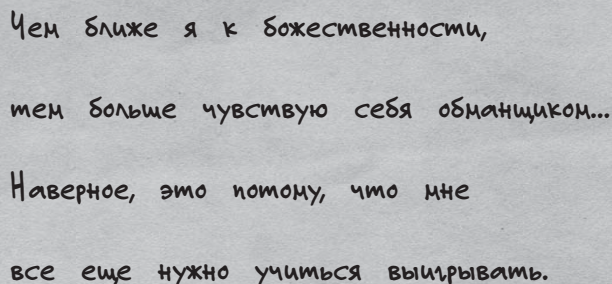 Чем ближе я к божественности,
тем больше чувствую себя обманщиком...
Наверное, это потому, что мне
все еще нужно учиться выигрывать.